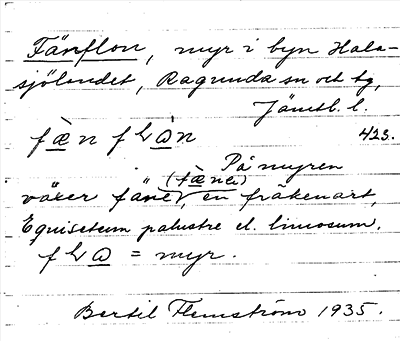 Fänflon, myr i byn Hala-
sjölandet, Ragunda sn och tg,
Jämtl. l.
fæ̀n flɷ̀n 423.
På myren
(fæ̀nei)
växer fäne, en fräkenart,
Equisetum palustre el. limosum.
flɷ = myr.
Bertil Flemström 1935.